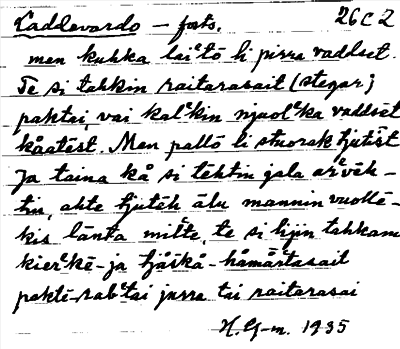 Laddevardo – forts. 26 C 2
men kuhka laiᵉtō li pirra vaddset.
Te si tahkin raitarasait (stegar i
paktai, vai kalᵉkin njuolᵉka vaddsēt
kåatēst. Men pallō li stuorak tjutēst
Ja taina kå si tehtin jala arᵉvēh-
tin, ahte tjutēh älu mannin vuottē-
kis lānta mitte, te si lijin tahkam
kierᵉkē- ja tjåskå-håmārᵉtasait
paktē-rabᵉtai jurra tai raitarasai
H. G-m. 1935